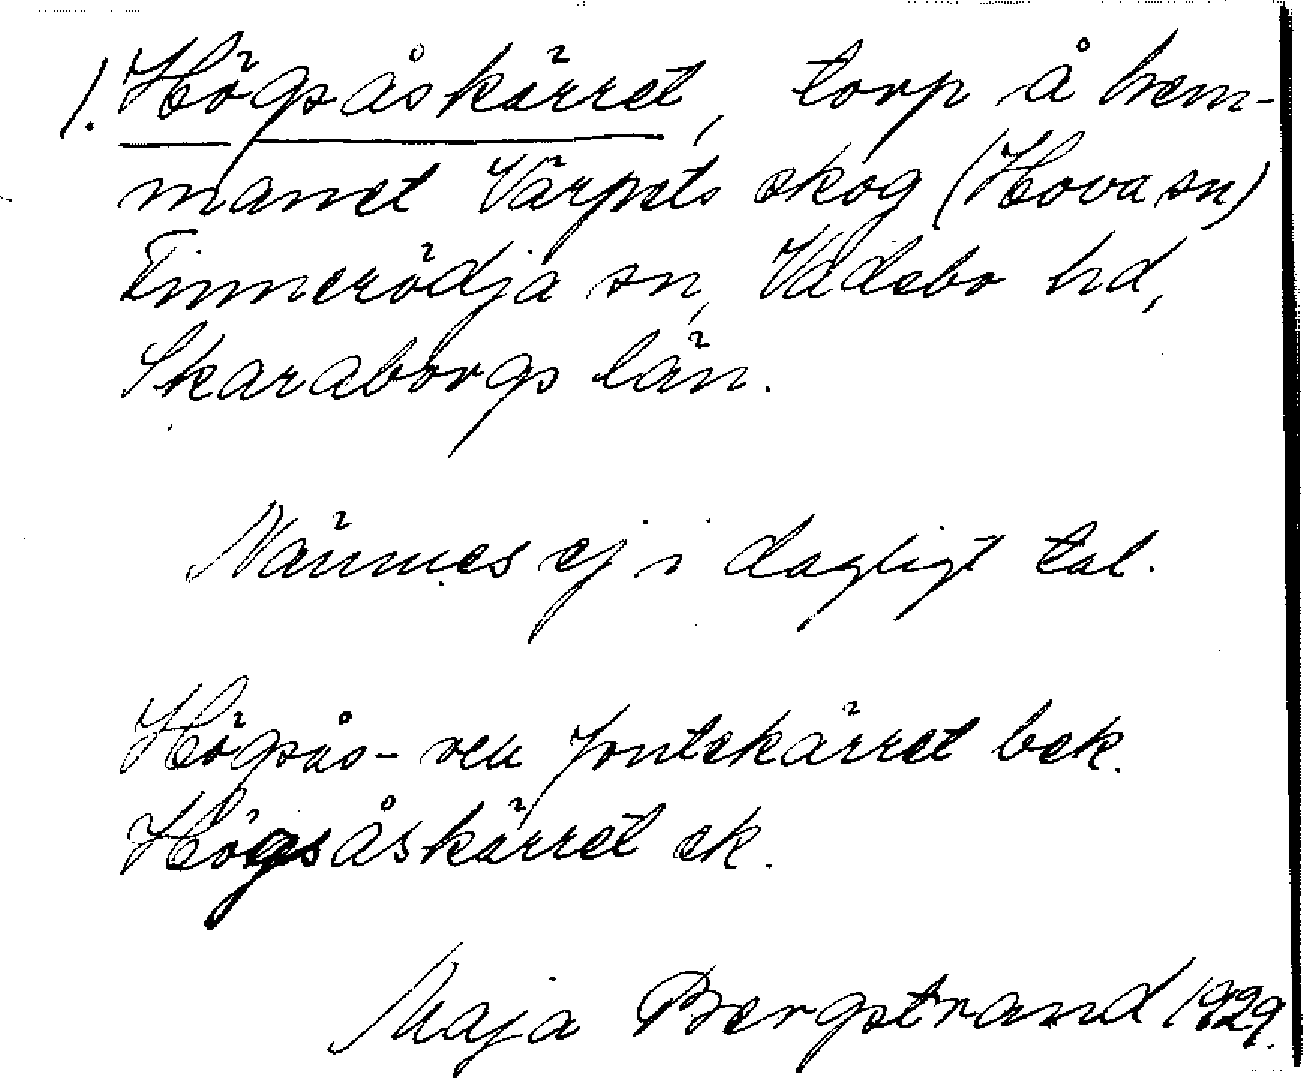 1. Högsåskärret, torp å hem-
manet Värpets skog (Hova sn)
Finnerödja sn, Vadsbo hd,
Skaraborgs län.
Nämnes ej i dagligt tal.
Högsås- Jontekärret bek.
Högsåskärret ek.
Maja Bergstrand 1929.